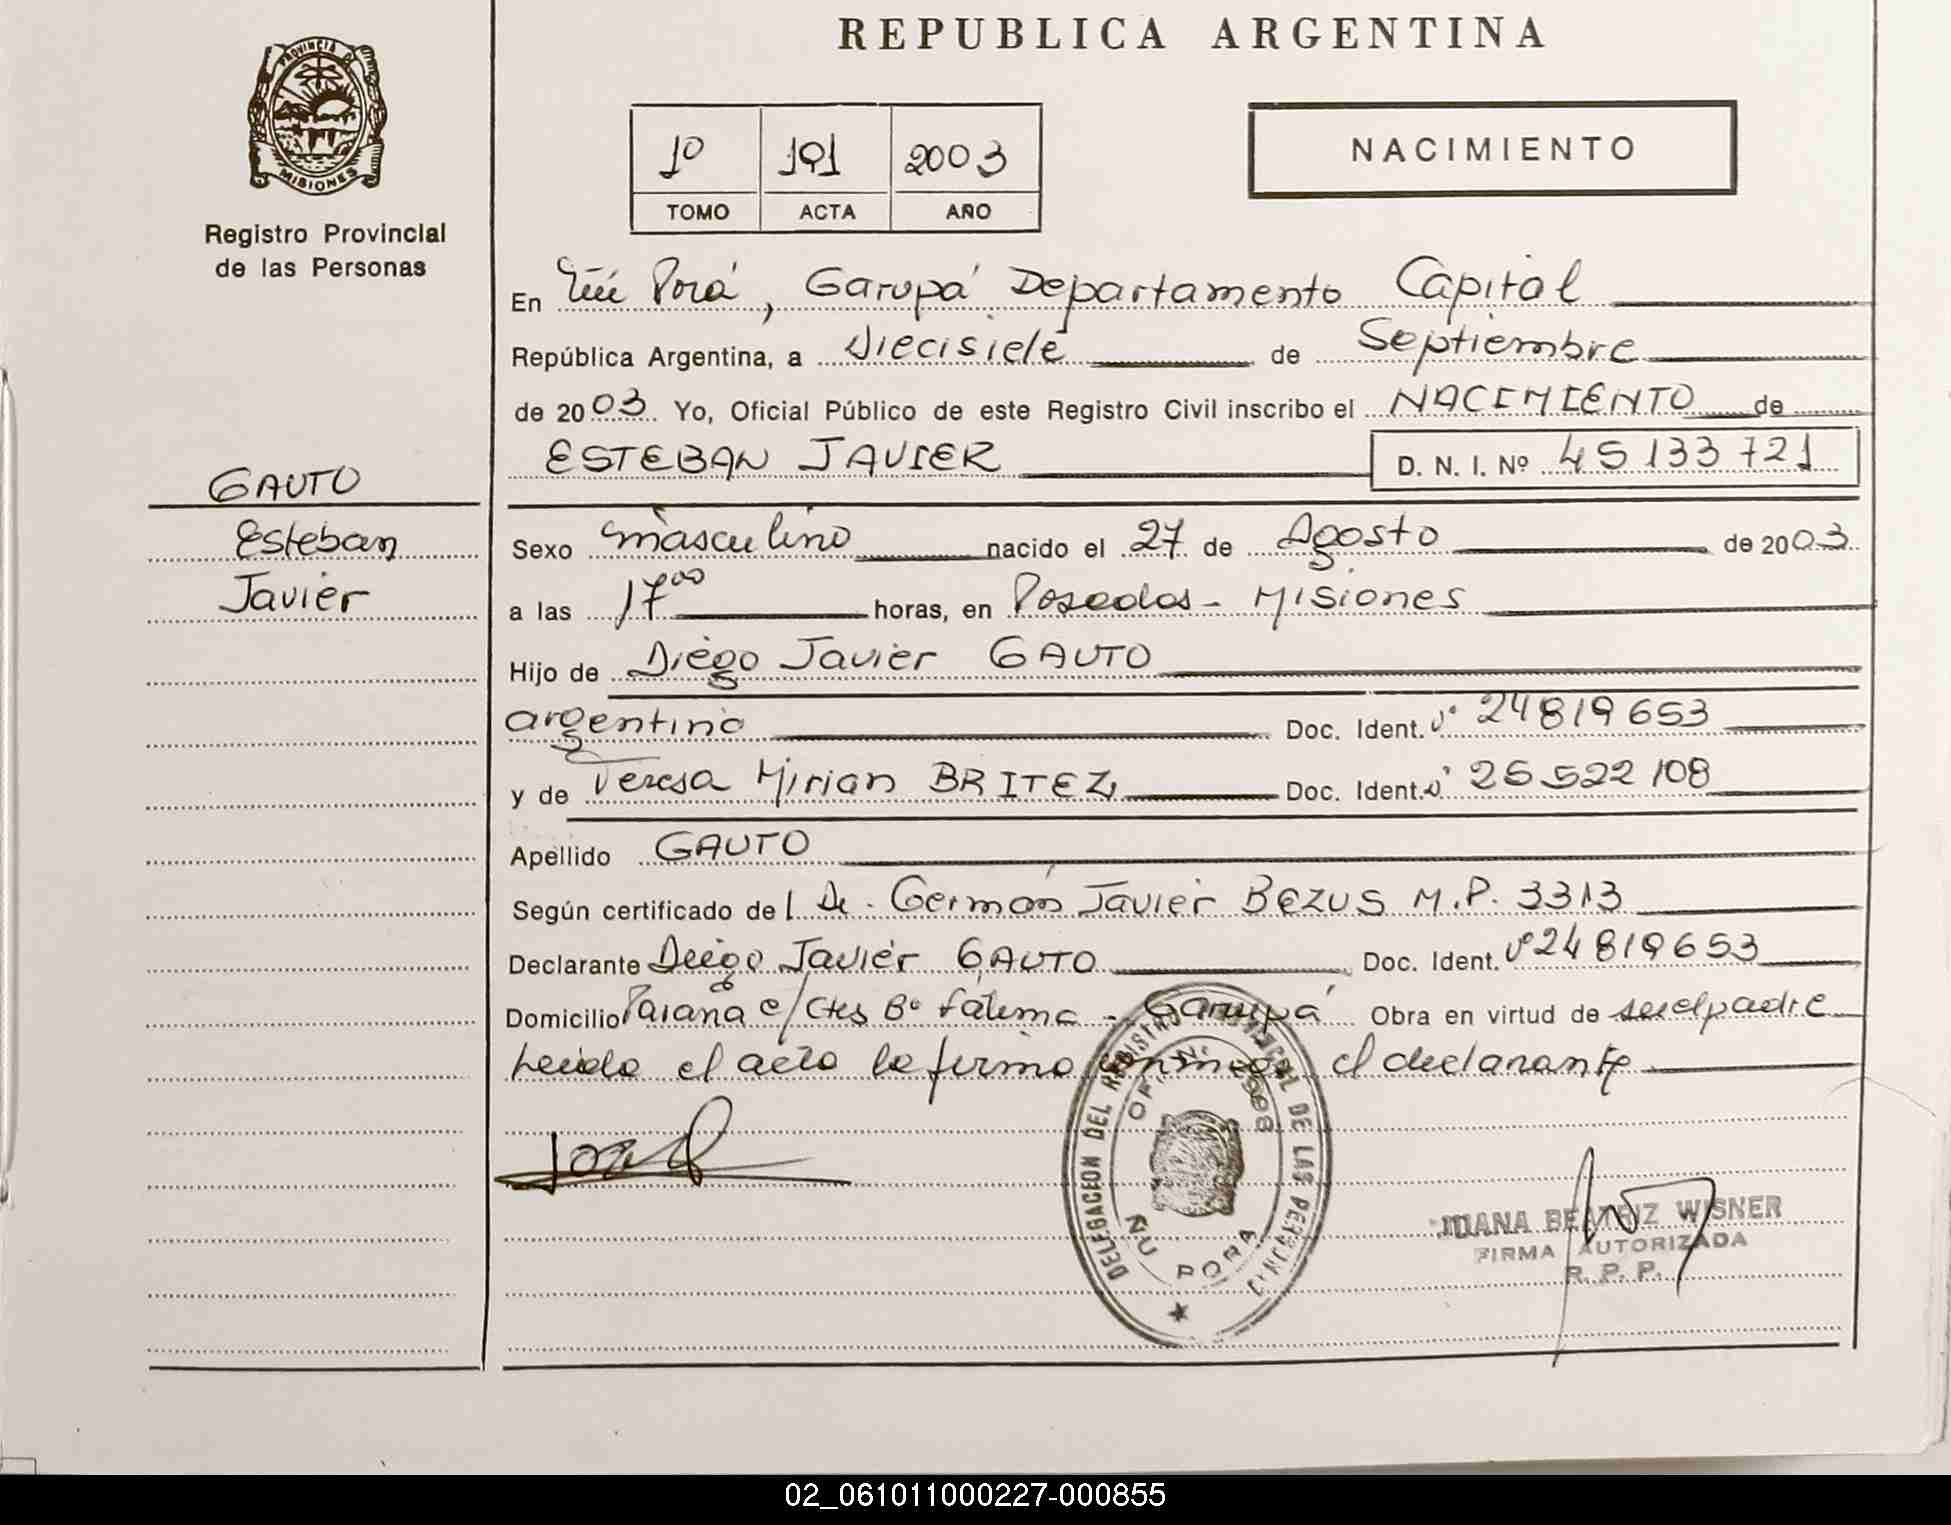 REPUBLICA ARGENTINA
PROVINCIA DE
MISIONES
Registro Provincial
de las Personas
1º 191 2003
TOMO ACTA AÑO
NACIMIENTO
En Ñu Porá, Garupá Departamento Capital
República Argentina, a Diecisiete de Septiembre
de 2003 Yo, Oficial Público de este Registro Civil inscribo el NACIMIENTO de
ESTEBAN JAVIER D. N. I. Nº 45133721
GAUTO
Esteban
Javier
Sexo masculino nacido el 27 de Agosto de 2003
a las 17⁰⁰ horas, en Posadas - Misiones
Hijo de Diego Javier GAUTO
argentino Doc. Ident. Nº 24819653
y de Teresa Mirian BRITEZ Doc. Ident. Nº 25522108
Apellido GAUTO
Según certificado del Dr. Germán Javier BEZUS M.P. 3313
Declarante Diego Javier GAUTO Doc. Ident. Nº 24819653
Domicilio Paraná e/Ctes Bº Fátima - Garupá Obra en virtud de ser el padre
Leída el acta la firma conmigo el declarante
DELEGACION DEL REGISTRO PROVINCIAL DE LAS PERSONAS
OF. Nº
ÑU PORA
JUANA BEATRIZ WISNER
FIRMA AUTORIZADA
R. P. P.
02_061011000227-000855